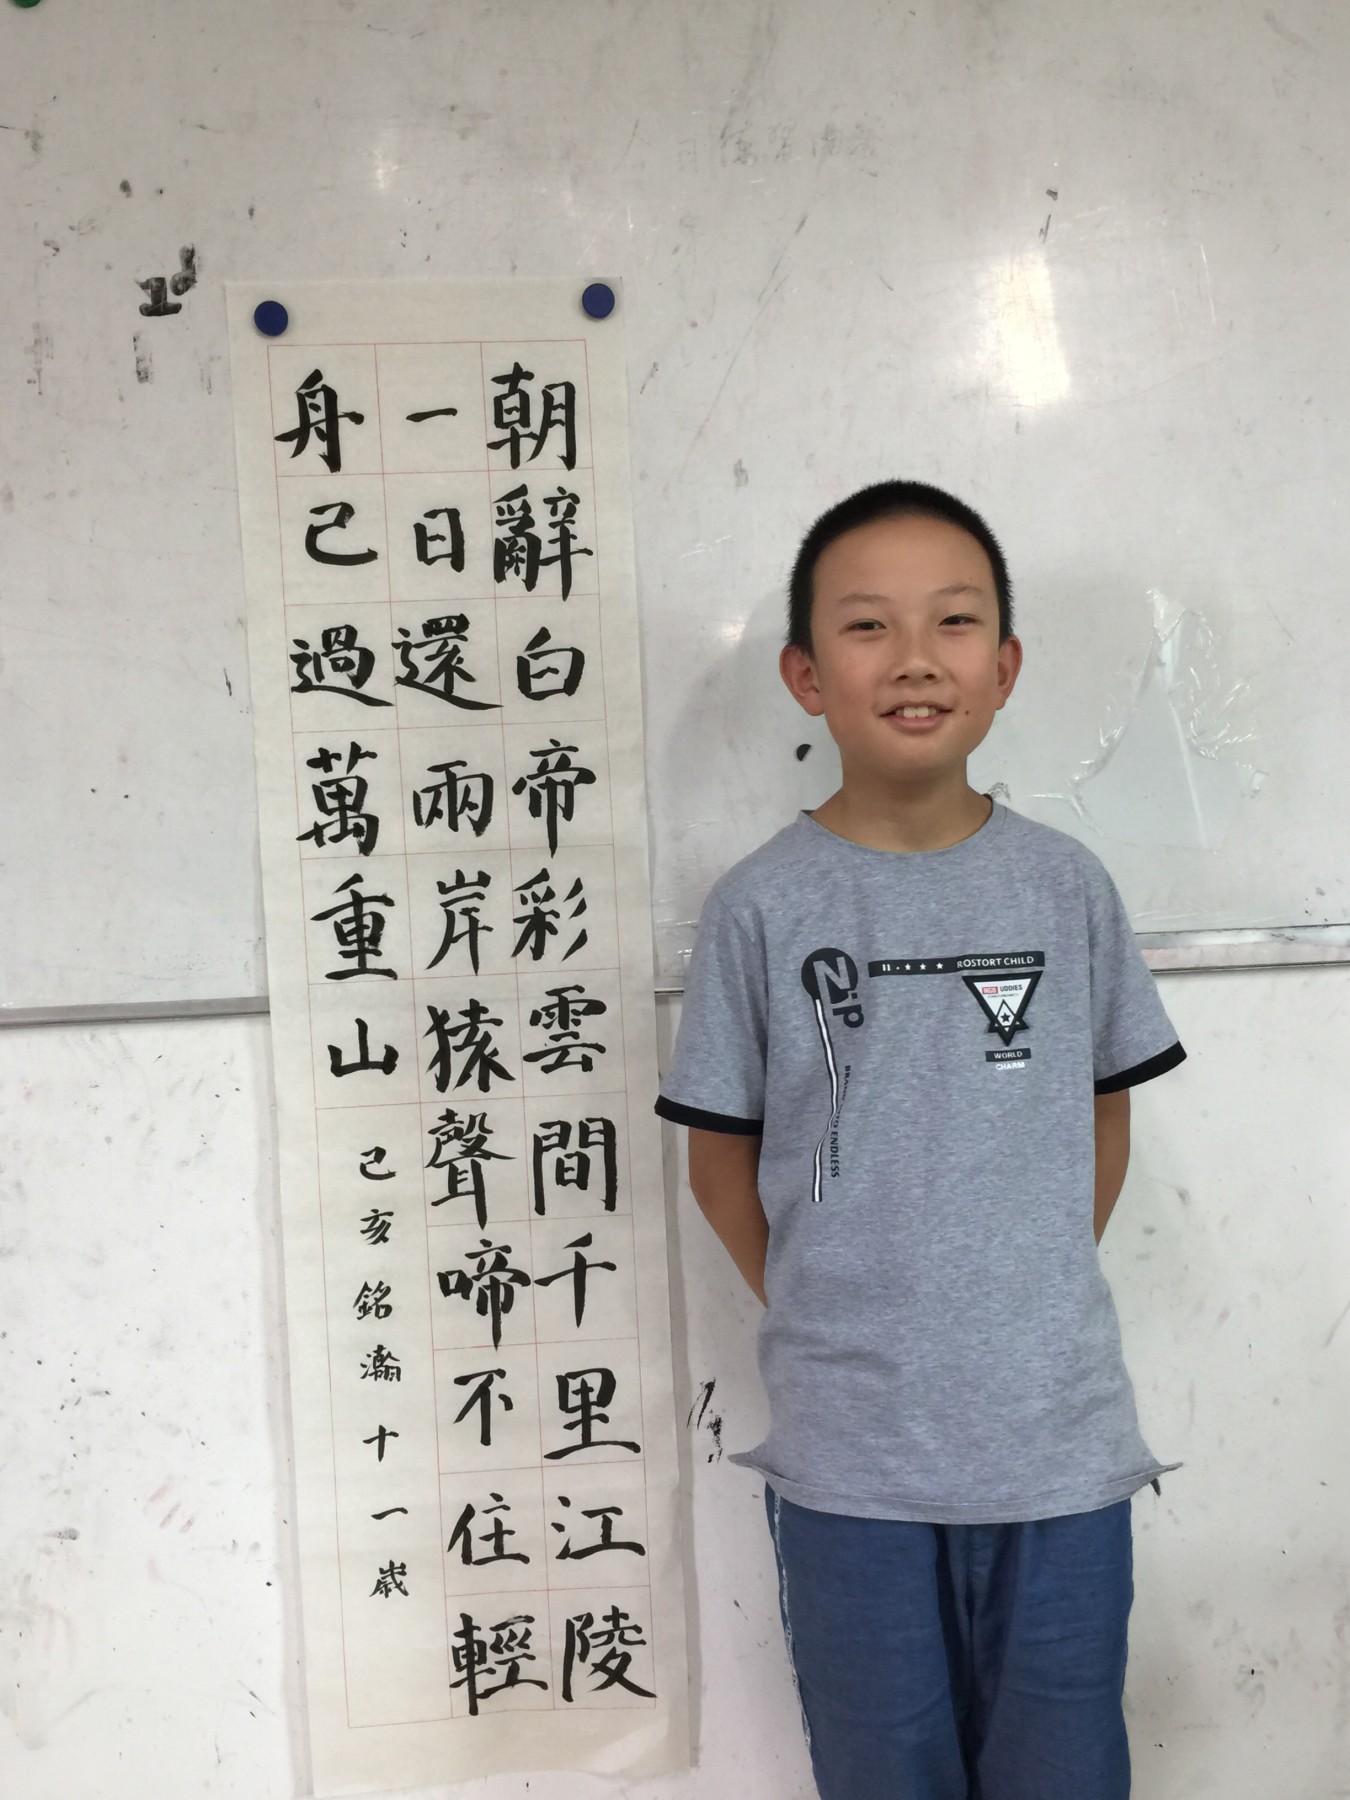 朝辭白帝彩雲間千里江陵
一日還兩岸猿聲啼不住輕
舟已過萬重山
己亥銘瀚十一歲
N.p
ROSTORT CHILD
UDDIES
WORLD
CHARM
ENDLESS